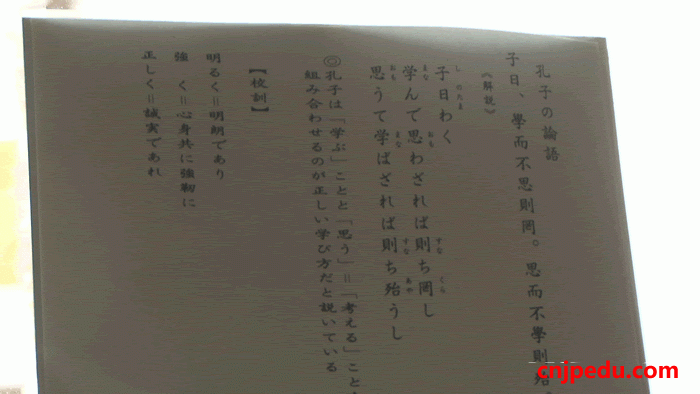 孔子の論語
子曰、學而不思則罔。思而不學則殆。
《解説》
子曰わく
学んで思わざれば則ち罔し
思うて学ばざれば則ち殆うし
◎孔子は「学ぶ」ことと「思う」=「考える」こと
組み合わせるのが正しい学び方だと説いている
【校訓】
明るく=明朗であり
強く=心身共に強靭に
正しく=誠実であれ
cnjpedu.com